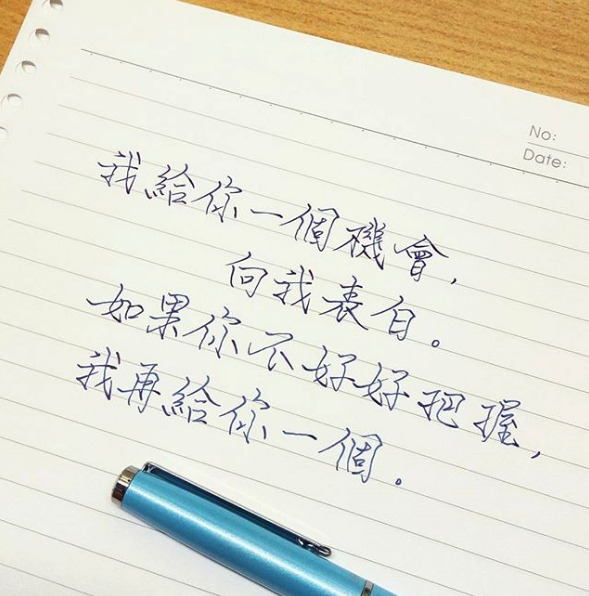 No:
Date:
我給你一個機會,
向我表白。
如果你不好好把握,
我再給你一個。